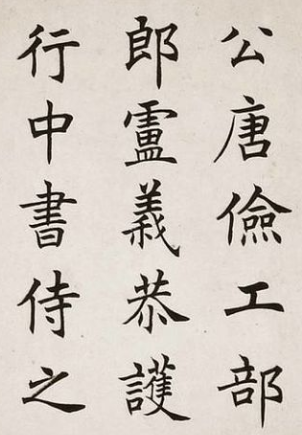 公唐儉工部
郎盧義恭護
行中書侍之